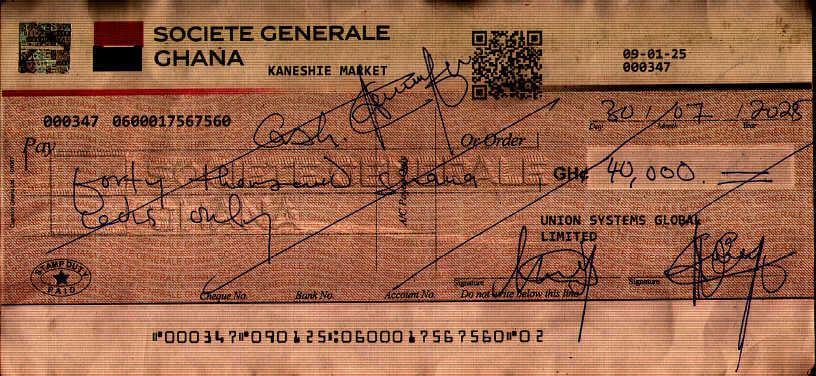 SOCIETE GENERALE
GHANA
KANESHIE MARKET
09-01-25
000347
000347 0600017567560
30 / 07 / 2025
Day Month Year
Pay Cash. Or Order
forty thousand Ghana
cedis only
GH¢ 40,000.
A/C Payee Only
UNION SYSTEMS GLOBAL
LIMITED
STAMP DUTY
PAID
Signature Signature
Cheque No. Bank No. Account No. Do not write below this line
⑈000347⑈090125⑆0600017567560⑈02